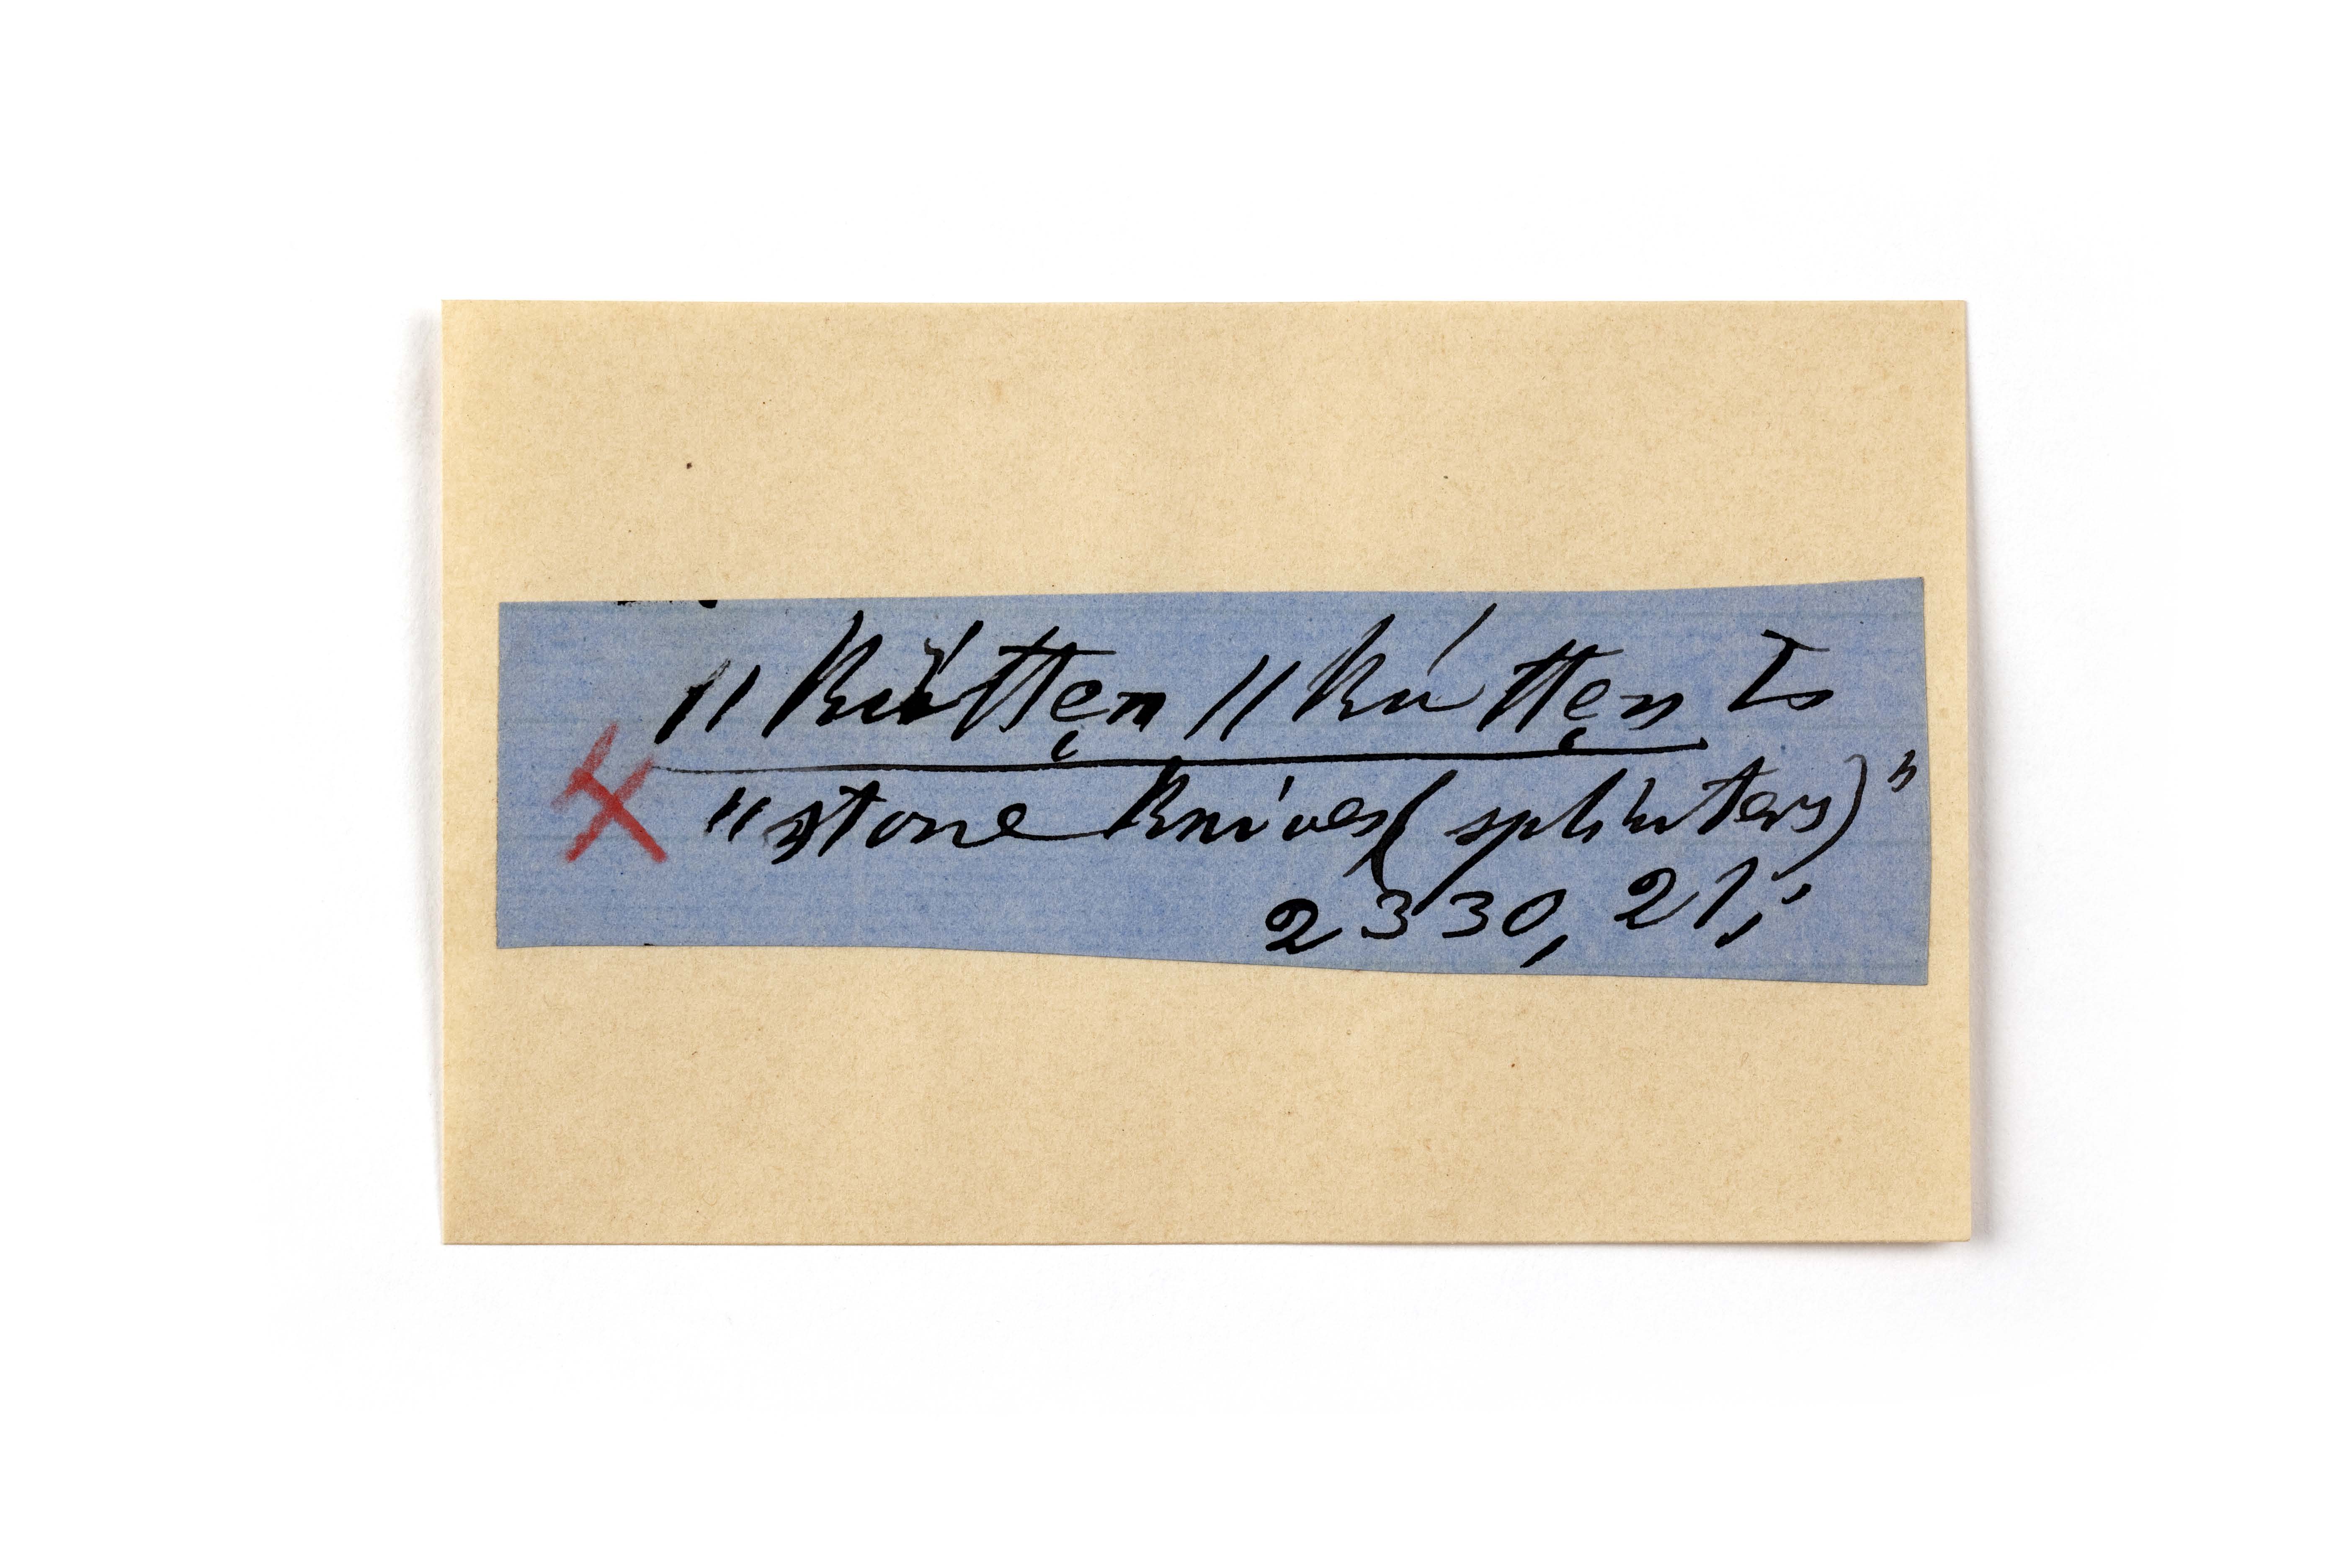 ǁkúttęn ǁkútten̨ Ts
"stone knives (splinters)"
2330, 21;'